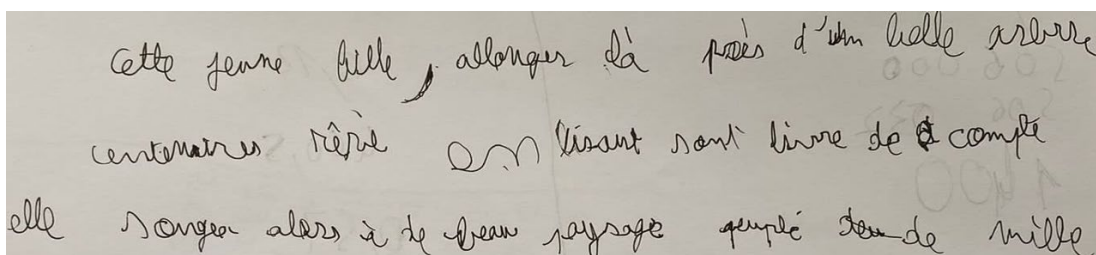 Cette jeune fille, allonger là près d'un belle arbre
centenaires rêve en lisant sont livre de compte
elle songea alors à de beau paysage peuplé de mille